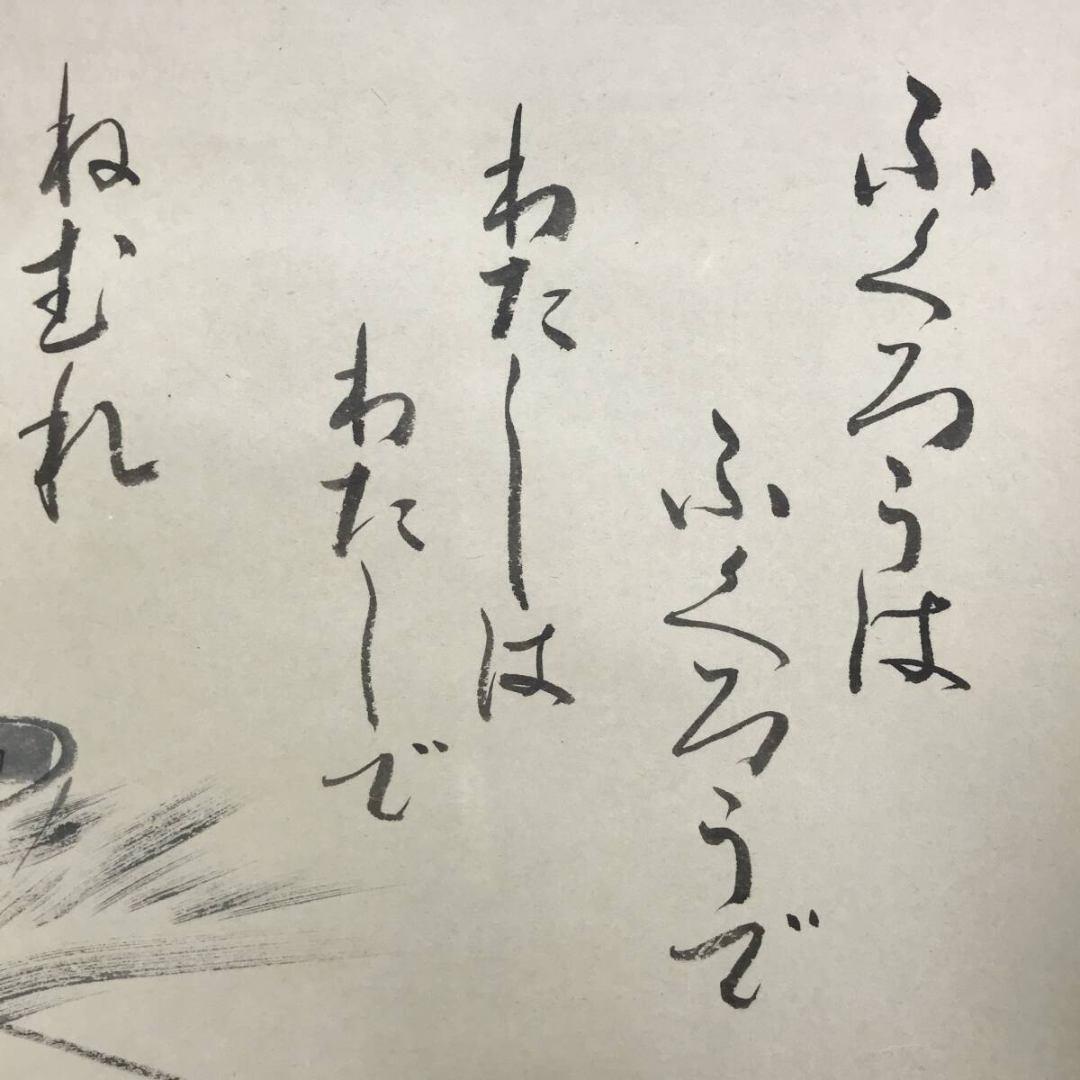 ふくろうは
ふくろうで
わたしは
わたしで
ねむれ